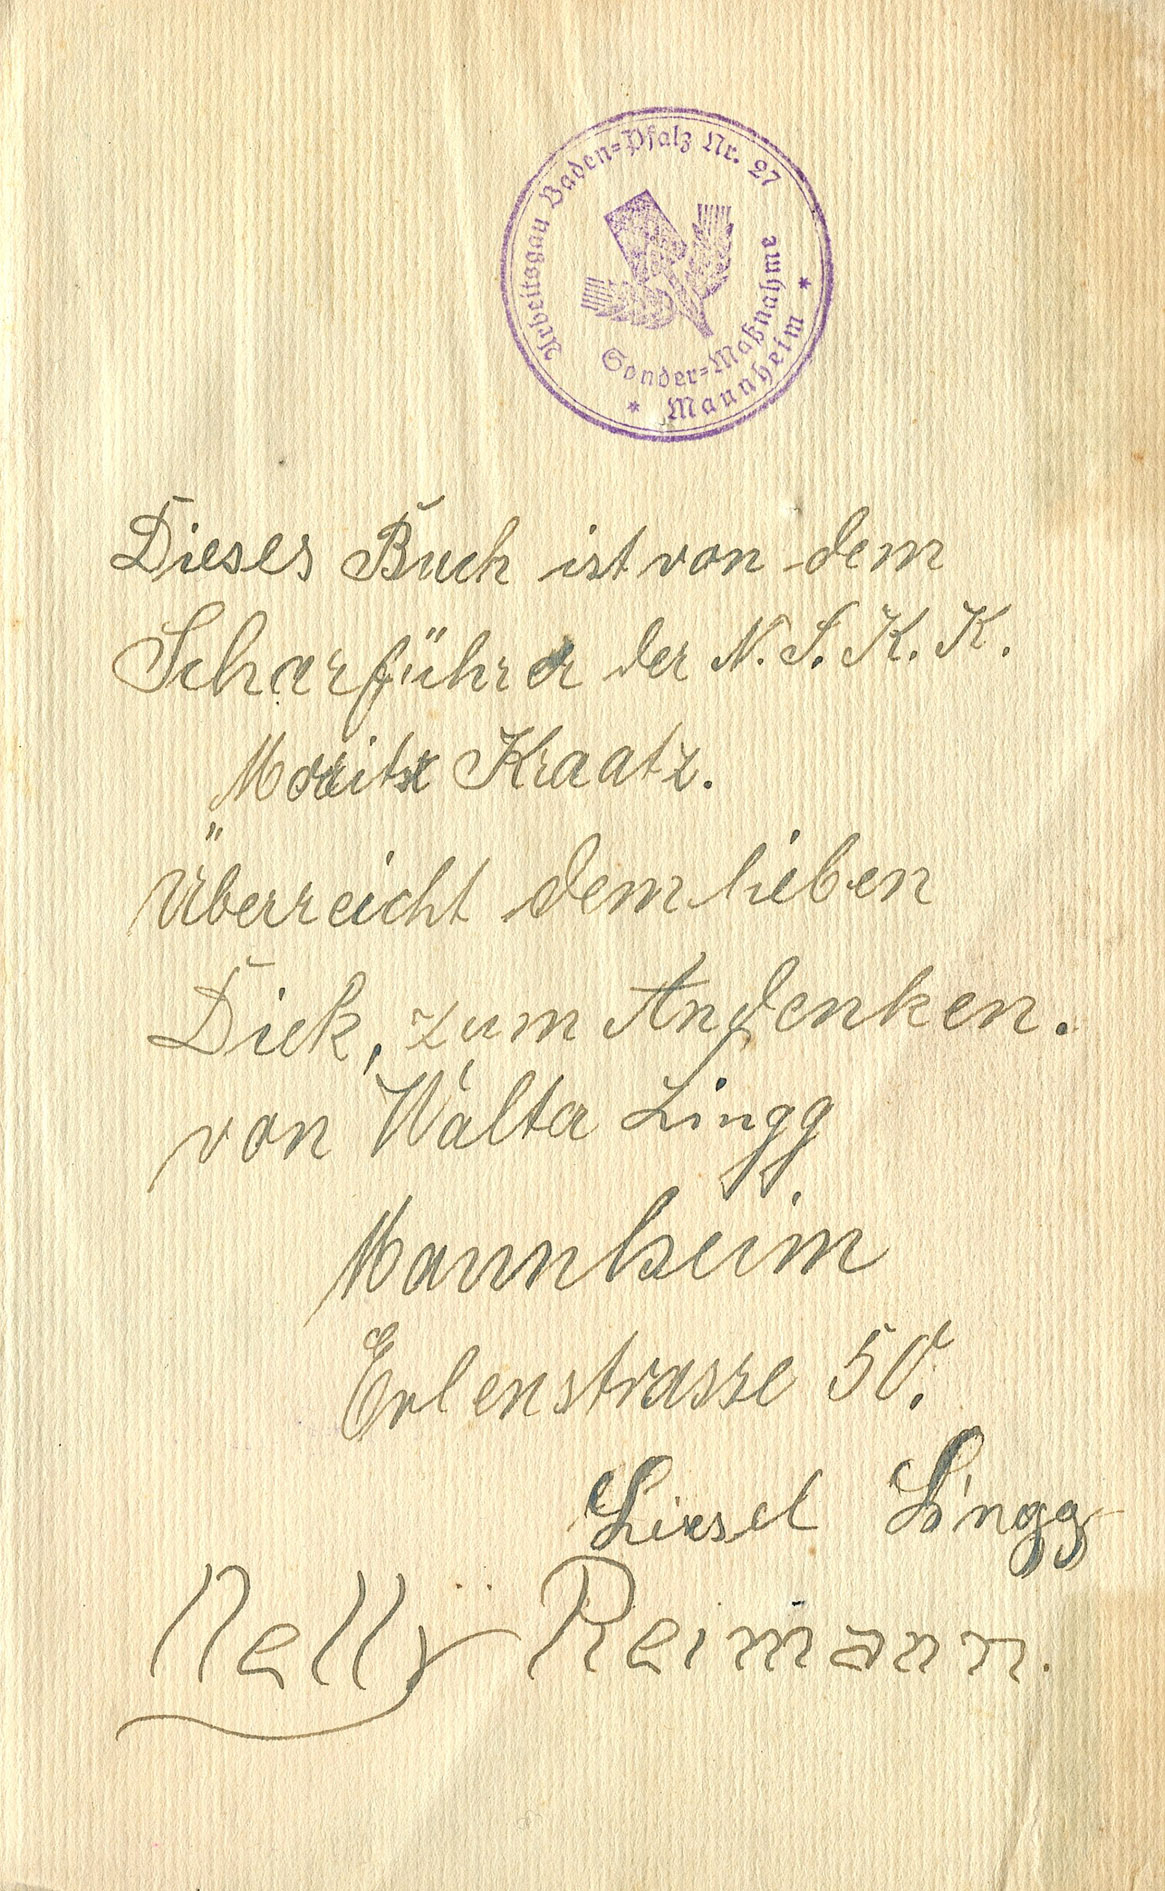 Arbeitsgau Baden=Pfalz Nr. 27
Sonder=Maßnahme
* Mannheim *
Dieses Buch ist von dem
Scharführer der N.S.K.K.
Moritz Kraatz.
Überreicht dem lieben
Dick, zum Andenken.
von Walter Lingg
Mannheim
Erlenstrasse 50.
Liesel Lingg
Nelly Reimann.